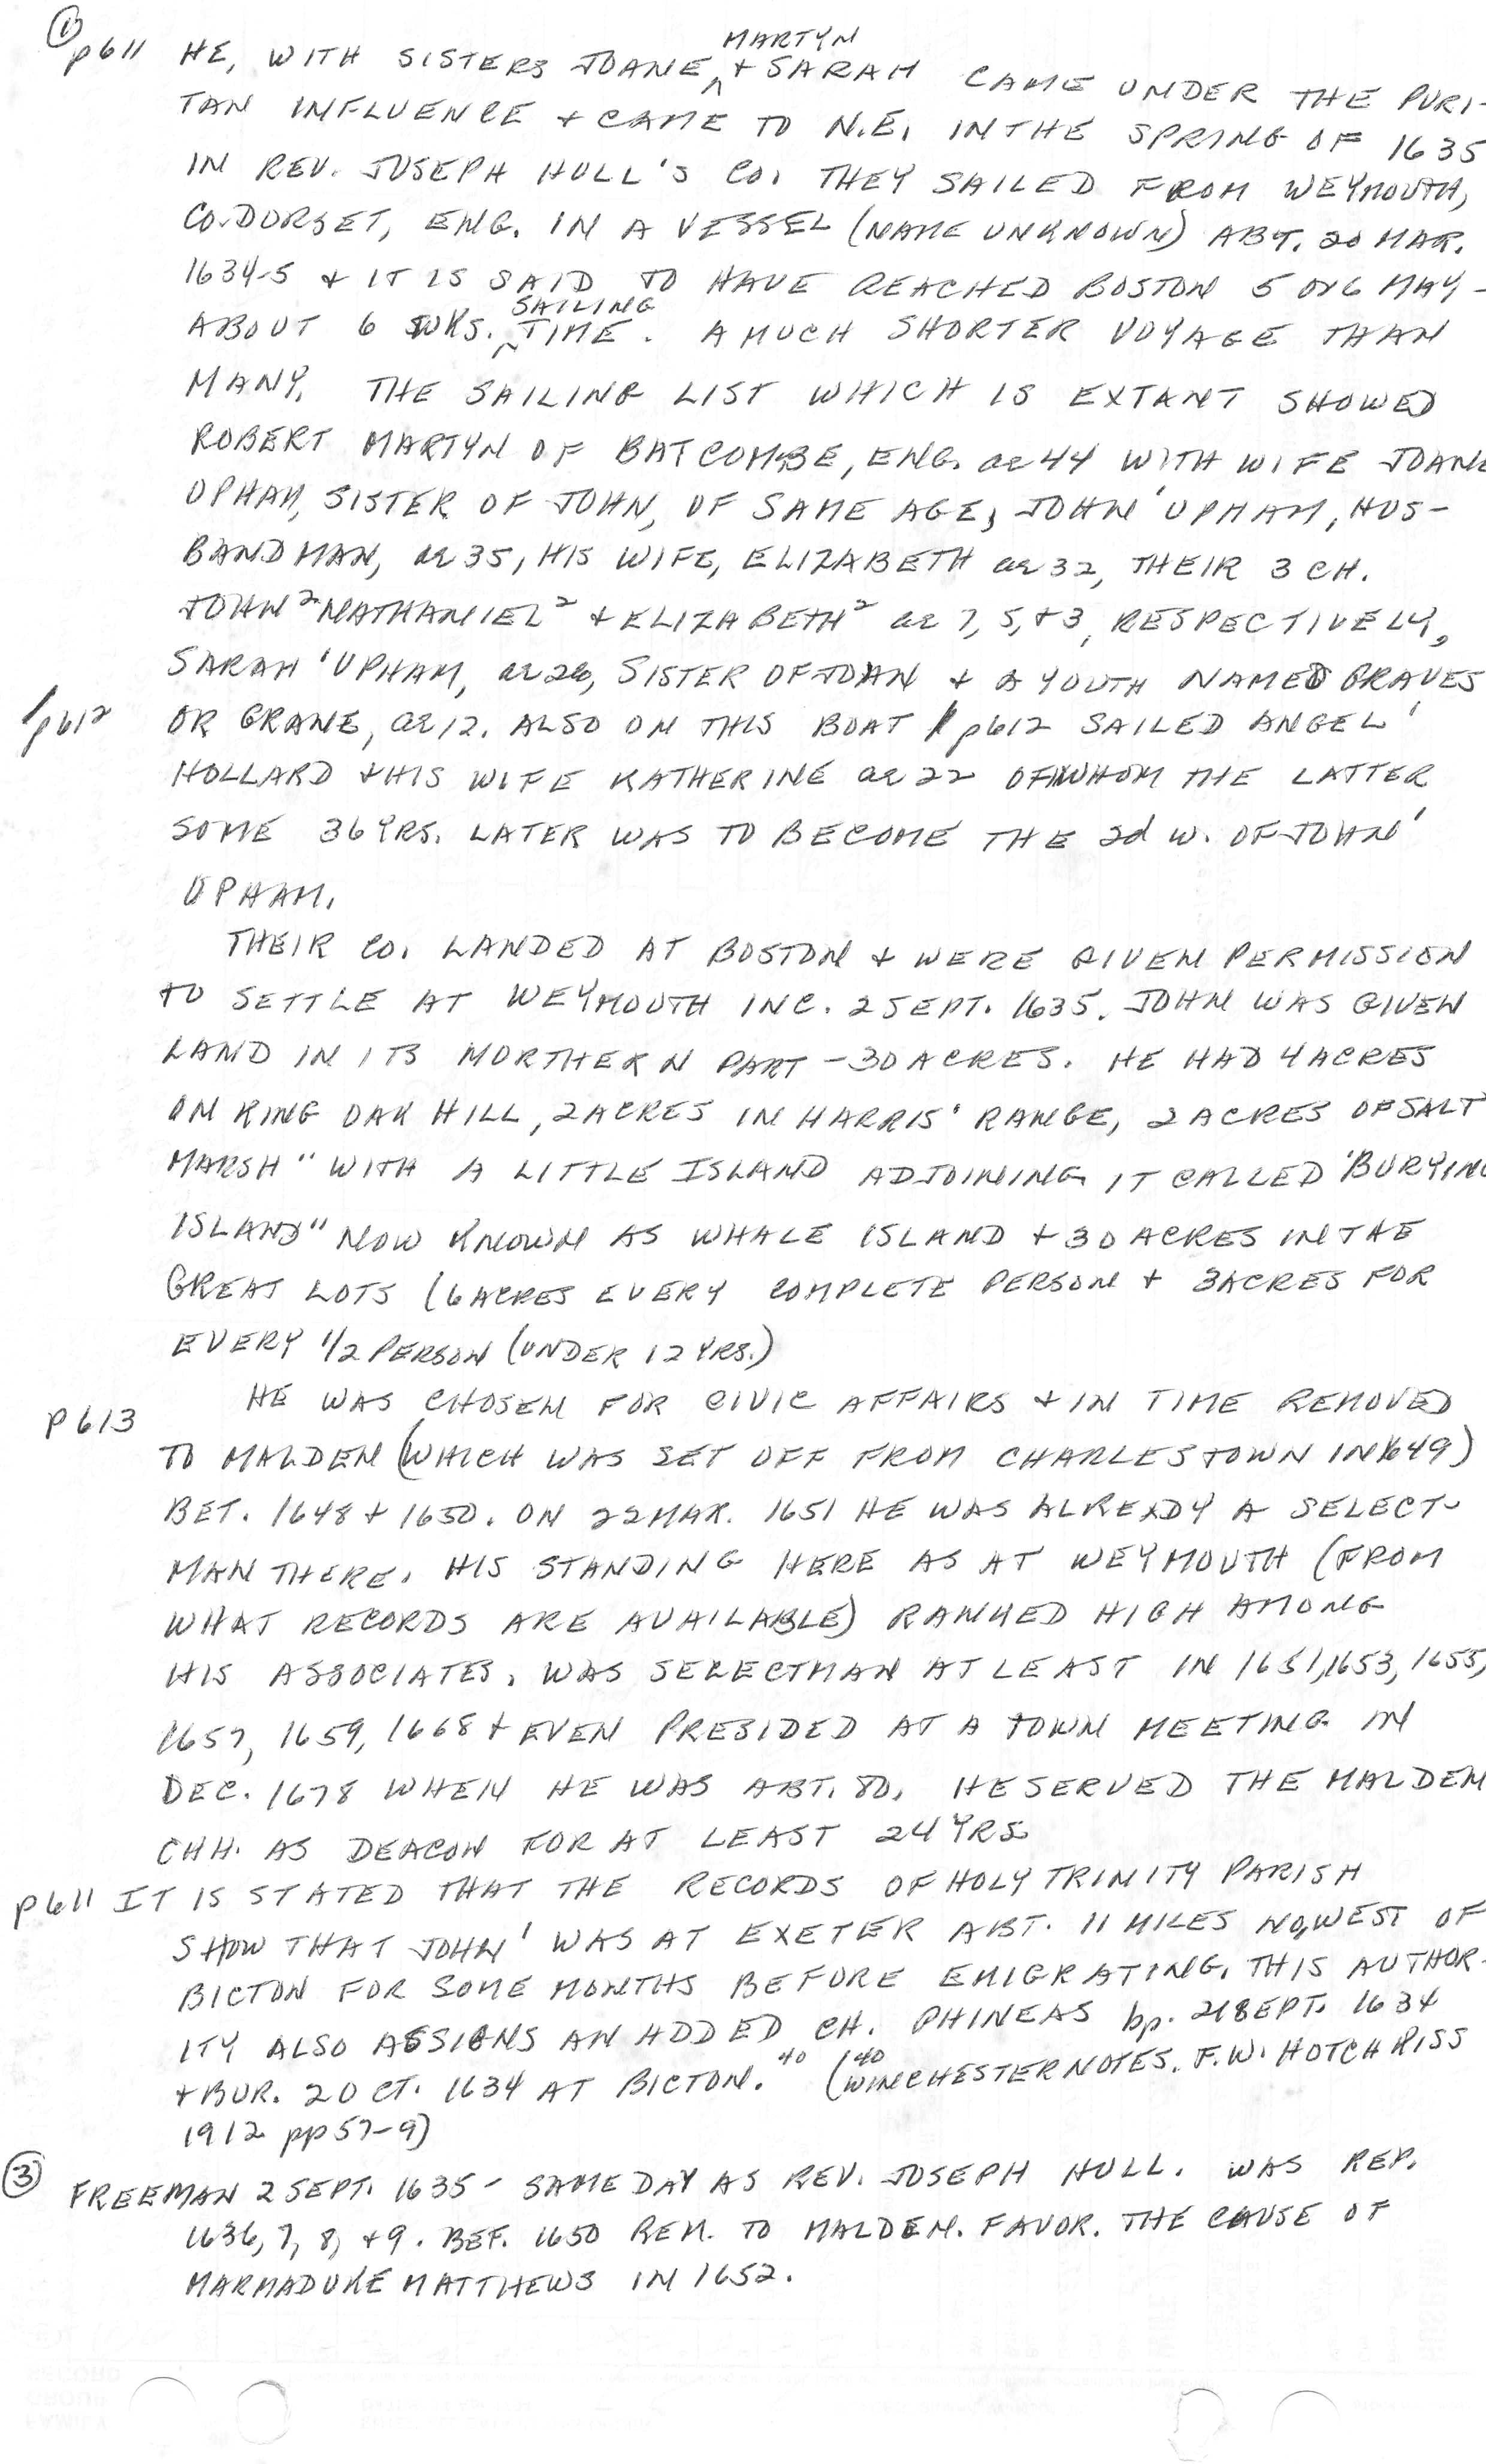 ① p611 HE, WITH SISTERS JOANE ^ MARTYN + SARAH CAME UNDER THE PURI-
TAN INFLUENCE + CAME TO N.E. IN THE SPRING OF 1635
IN REV. JOSEPH HULL'S CO. THEY SAILED FROM WEYMOUTH,
CO. DORSET, ENG. IN A VESSEL (NAME UNKNOWN) ABT. 20 MAR.
1634-5 + IT IS SAID TO HAVE REACHED BOSTON 5 or 6 MAY -
ABOUT 6 WKS. ^ SAILING TIME. A MUCH SHORTER VOYAGE THAN
MANY. THE SAILING LIST WHICH IS EXTANT SHOWED
ROBERT MARTYN OF BATCOMBE, ENG. ae 44 WITH WIFE JOANE
UPHAM, SISTER OF JOHN, OF SAME AGE; JOHN¹ UPHAM, HUS-
BANDMAN, ae 35, HIS WIFE, ELIZABETH ae 32, THEIR 3 CH.
JOHN² NATHANIEL² + ELIZABETH² ae 7, 5, + 3, RESPECTIVELY,
SARAH¹ UPHAM, ae 26, SISTER OF JOHN + A YOUTH NAMED GRAVES
/p612 OR GRANE, ae 12. ALSO ON THIS BOAT / p612 SAILED ANGEL¹
HOLLARD + HIS WIFE KATHERINE ae 22 OF WHOM THE LATTER
SOME 36 YRS. LATER WAS TO BECOME THE 2d W. OF JOHN¹
UPHAM.
THEIR CO. LANDED AT BOSTON + WERE GIVEN PERMISSION
TO SETTLE AT WEYMOUTH INC. 2 SEPT. 1635. JOHN WAS GIVEN
LAND IN ITS NORTHERN PART - 30 ACRES. HE HAD 4 ACRES
ON KING OAK HILL, 2 ACRES IN HARRIS' RANGE, 2 ACRES OF SALT
MARSH "WITH A LITTLE ISLAND ADJOINING IT CALLED 'BURYING
ISLAND" NOW KNOWN AS WHALE ISLAND + 30 ACRES IN THE
GREAT LOTS (6 ACRES EVERY COMPLETE PERSON + 3 ACRES FOR
EVERY 1/2 PERSON (UNDER 12 YRS.)
p613 HE WAS CHOSEN FOR CIVIC AFFAIRS + IN TIME REMOVED
TO MALDEN (WHICH WAS SET OFF FROM CHARLESTOWN IN 1649)
BET. 1648 + 1650. ON 22 MAR. 1651 HE WAS ALREADY A SELECT-
MAN THERE. HIS STANDING HERE AS AT WEYMOUTH (FROM
WHAT RECORDS ARE AVAILABLE) RANKED HIGH AMONG
HIS ASSOCIATES. WAS SELECTMAN AT LEAST IN 1651, 1653, 1655,
1657, 1659, 1668 + EVEN PRESIDED AT A TOWN MEETING IN
DEC. 1678 WHEN HE WAS ABT. 80. HE SERVED THE MALDEN
CHH. AS DEACON FOR AT LEAST 24 YRS.
p611 IT IS STATED THAT THE RECORDS OF HOLY TRINITY PARISH
SHOW THAT JOHN¹ WAS AT EXETER ABT. 11 MILES NO. WEST OF
BICTON FOR SOME MONTHS BEFORE EMIGRATING. THIS AUTHOR-
ITY ALSO ASSIGNS AN ADDED CH. PHINEAS bp. 21 SEPT. 1634
+ BUR. 2 OCT. 1634 AT BICTON." 40 (40 WINCHESTER NOTES. F.W. HOTCHKISS
1912 pp 57-9)
③ FREEMAN 2 SEPT. 1635 - SAME DAY AS REV. JOSEPH HULL. WAS REP.
1636, 7, 8, + 9. BEF. 1650 REM. TO MALDEN. FAVOR. THE CAUSE OF
MARMADUKE MATTHEWS IN 1652.